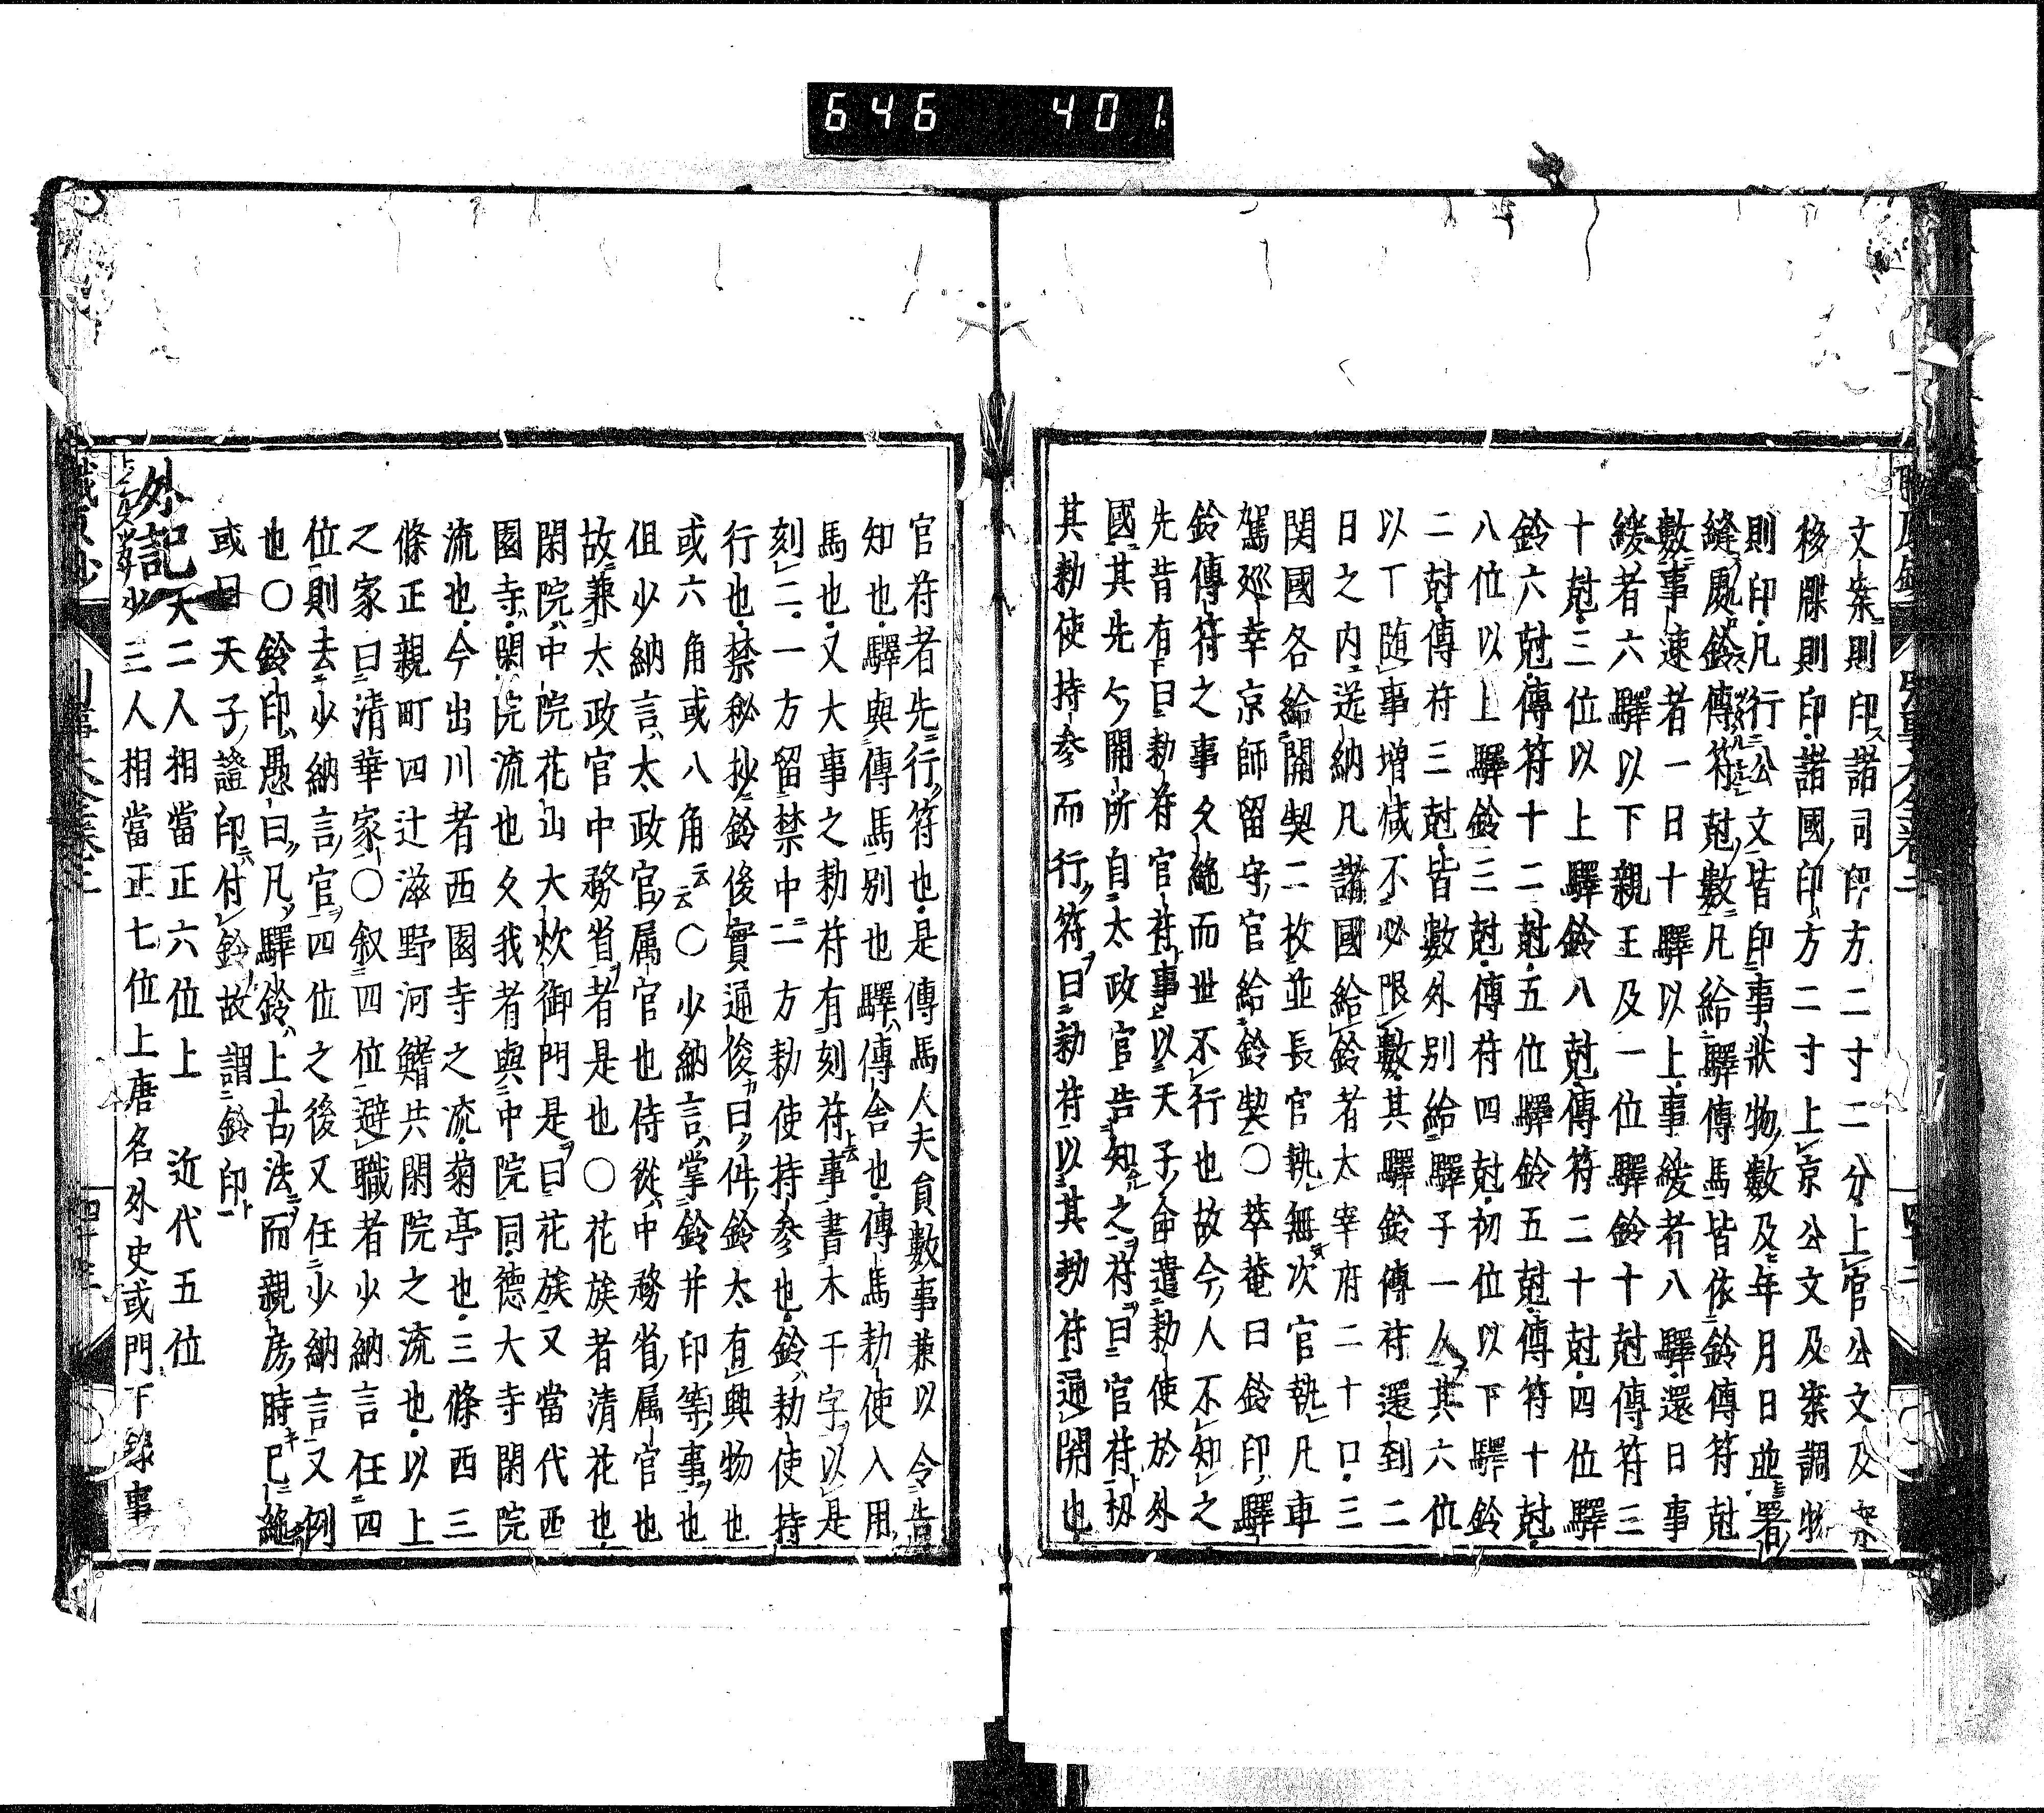 646 401
文案則印諸司印方二寸二分上官公文及案
移牒則印諸國印方二寸上京公文及案調物
則印凡行公文皆印事狀物數及年月日並署
縫處鈴傳符尅數凡給驛傳馬皆依鈴傳符尅
數事速者一日十驛以上事緩者八驛還日事
緩者六驛以下親王及一位驛鈴十尅傳符三
十尅三位以上驛鈴八尅傳符二十尅四位驛
鈴六尅傳符十二尅五位驛鈴五尅傳符十尅
八位以上驛鈴三尅傳符四尅初位以下驛鈴
二尅傳符三尅皆數外別給驛子一人其六位
以下随事增减不必限數其驛鈴傳符還到二
日之内送納凡諸國給鈴者太宰府二十口三
関國各給關契二枚並長官執無次官執凡車
駕廵幸京師留守官給鈴契〇萃菴曰鈴印驛
鈴傳符之事久絶而世不行也故今人不知之
先昔有曰勅符官符事以天子命遣勅使於外
國其先々開所自太政官告知之符曰官符扨
其勅使持參而行符曰勅符以其勅符通開也
官符者先行符也是傳馬人夫負數事兼以令告
知也驛與傳馬別也驛傳舎也傳馬勅使入用
馬也又大事之勅符有刻符事書木千字以是
刻二一方留禁中二一方勅使持參也鈴勅使持
行也禁秘抄鈴後實通俊曰件鈴太有興物也
或六角或八角云云〇少納言掌鈴并印等事也
但少納言太政官属官也侍從中務省属官也
故兼太政官中務省者是也〇花族者清花也
閑院中院花山大炊御門是曰花族又當代西
園寺閑院流也久我者與中院同德大寺閑院
流也今出川者西園寺之流菊亭也三條西三
條正親町四辻滋野河鰭共閑院之流也以上
之家曰清華家〇叙四位避職者少納言任四
位則去少納言官四位之後又任少納言又例
也〇鈴印愚曰凡驛鈴上古法而親房時已絶
或曰天子證印付鈴故謂鈴印
外記大二人相當正六位上 近代五位
少三人相當正七位上唐名外史或門下録事